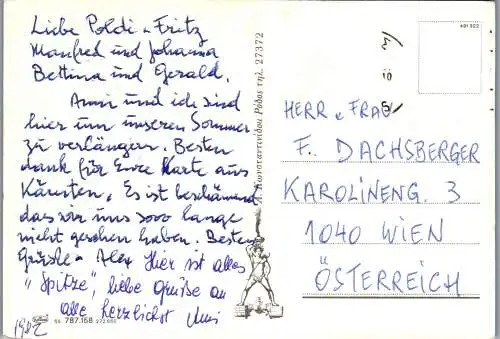 Liebe Poldi u Fritz
Manfred und Johanna
Bettina und Gerald.
Anni und ich sind
hier um unseren Sommer
zu verlängern. Besten
dank für Eure Karte aus
Kärnten. Es ist beschämend
das wir uns sooo lange
nicht gesehen haben. Besten
Grüße - Alex Hier ist alles
"Spitze", liebe Grüße an
alle herzlichst Anni
1982
787.168
Κωνσταντινίδου Ρόδος τηλ. 27372
HERR u FRAU
F. DACHSBERGER
KAROLINENG. 3
1040 WIEN
ÖSTERREICH